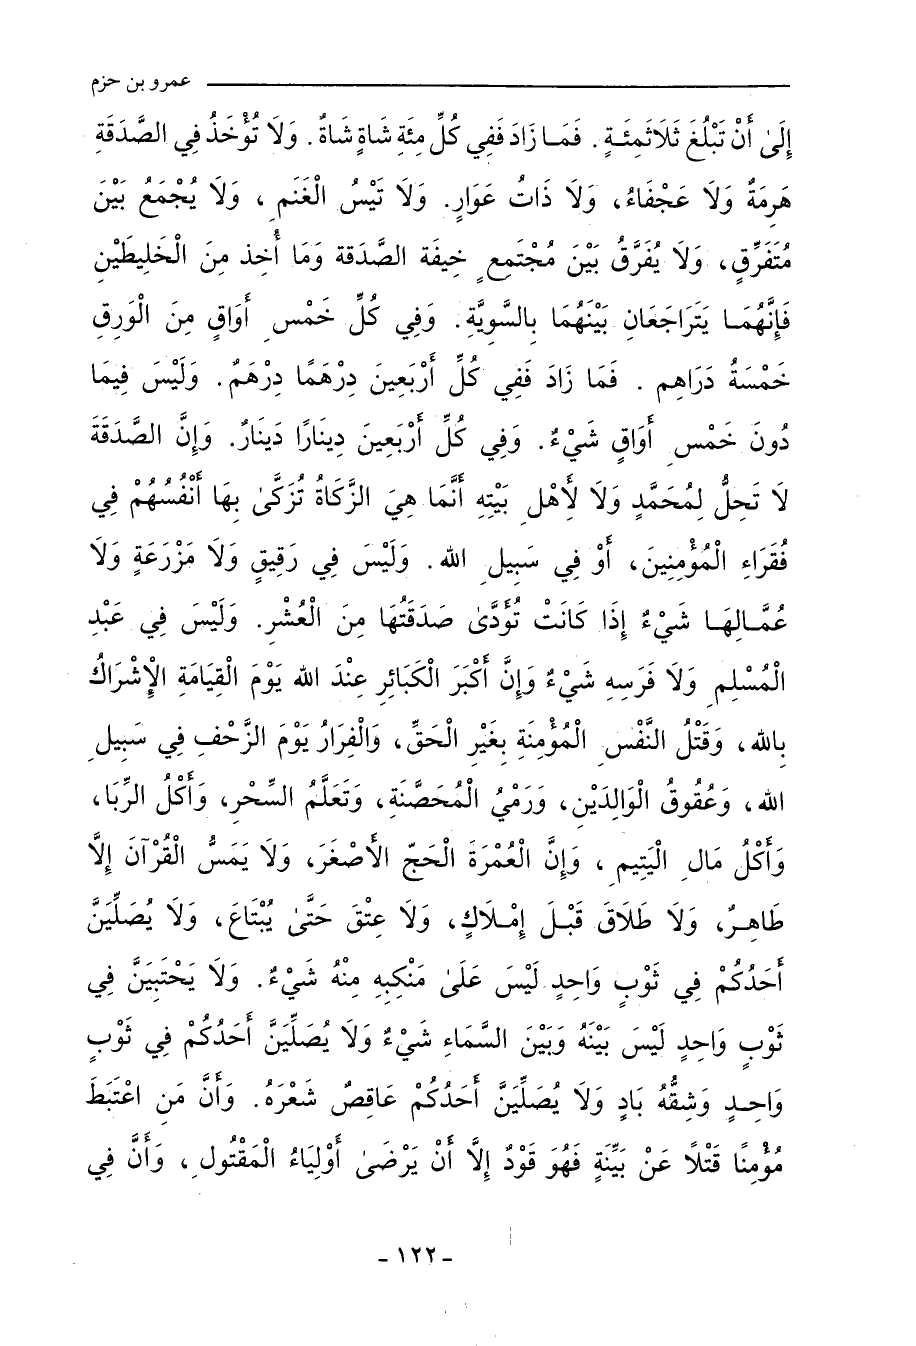 عمرو بن حزم
إِلَىٰ أَنْ تَبْلُغَ ثَلَاثَمِئَةٍ . فَمَا زَادَ فَفِي كُلِّ مِئَةِ شَاةٍ شَاةٌ. وَلَا تُؤْخَذُ فِي الصَّدَقَةِ
هَرِمَةٌ وَلَا عَجْفَاءُ، وَلَا ذَاتُ عَوَارٍ. وَلَا تَيْسُ الْغَنَمِ ، وَلَا يُجْمَعُ بَيْنَ
مُتَفَرِّقٍ، وَلَا يُفَرَّقُ بَيْنَ مُجْتَمِعٍ خِيفَة الصَّدَقة وَمَا أُخِذ مِنَ الْخَلِيطَيْنِ
فَإِنَّهُمَا يَتَرَاجَعَانِ بَيْنَهُمَا بِالسَّوِيَّةِ. وَفِي كُلِّ خَمْسِ أَوَاقٍ مِنَ الْوَرِقِ
خَمْسَةُ دَرَاهِم . فَمَا زَادَ فَفِي كُلِّ أَرْبَعِينَ دِرْهَمًا دِرْهَمٌ. وَلَيْسَ فِيمَا
دُونَ خَمْسِ أَوَاقٍ شَيْءٌ. وَفِي كُلِّ أَرْبَعِينَ دِينَارًا دَينَارٌ. وَإِنَّ الصَّدَقَةَ
لاَ تَحِلُّ لِمُحَمَّدٍ وَلَا لِأَهْلِ بَيْتِهِ أَنَّمَا هِيَ الزَّكَاةُ تُزَكَّىٰ بِهَا أَنْفُسُهُمْ فِي
فُقَرَاءِ الْمُؤْمِنِينَ، أَوْ فِي سَبِيلِ الله. وَلَيْسَ فِي رَقِيقٍ وَلَا مَزْرَعَةٍ وَلَا
عُمَّالِهَا شَيْءٌ إِذَا كَانَتْ تُؤَدَّىٰ صَدَقَتُهَا مِنَ الْعُشْرِ. وَلَيْسَ فِي عَبْدِ
الْمُسْلِمِ وَلَا فَرَسِهِ شَيْءٌ وَإِنَّ أَكْبَرَ الْكَبَائِرِ عِنْدَ الله يَوْمَ الْقِيَامَةِ الْإِشْرَاكُ
بِالله، وَقَتْلُ النَّفْسِ الْمُؤْمِنَةِ بِغَيْرِ الْحَقِّ، وَالْفِرَارُ يَوْمَ الزَّحْفِ فِي سَبِيلِ
الله، وَعُقُوقُ الْوَالِدَيْنِ، وَرَمْيُ الْمُحَصَّنَةِ، وَتَعَلَّمُ السِّحْرِ، وَأَكْلُ الرِّبَا،
وَأَكْلُ مَالِ الْيَتِيمِ ، وَإِنَّ الْعُمْرَةَ الْحَجّ الأَصْغَرَ، وَلَا يَمَسُّ الْقُرْآنَ إِلَّا
طَاهِرٌ، وَلَا طَلَاقَ قَبْلَ إِمْلَاكٍ، وَلَا عِتْقَ حَتَّىٰ يُبْتَاعَ، وَلَا يُصَلِّيَنَّ
أَحَدُكُمْ فِي ثَوْبٍ وَاحِدٍ لَيْسَ عَلَىٰ مَنْكِبِهِ مِنْهُ شَيْءٌ. وَلَا يَحْتَبِيَنَّ فِي
ثَوْبٍ وَاحِدٍ لَيْسَ بَيْنَهُ وَبَيْنَ السَّمَاءِ شَيْءٌ وَلَا يُصَلِّيَنَّ أَحَدُكُمْ فِي ثَوْبٍ
وَاحِدٍ وَشِقُّهُ بَادٍ وَلَا يُصَلِّيَنَّ أَحَدُكُمْ عَاقِصٌ شَعْرَهُ. وَأَنَّ مَنِ اعْتَبَطَ
مُؤْمِنًا قَتْلًا عَنْ بَيِّنَةٍ فَهُوَ قَوْدٌ إِلَّا أَنْ يَرْضَىٰ أَوْلِيَاءُ الْمَقْتُولِ، وَأَنَّ فِي
- ١٢٢ -